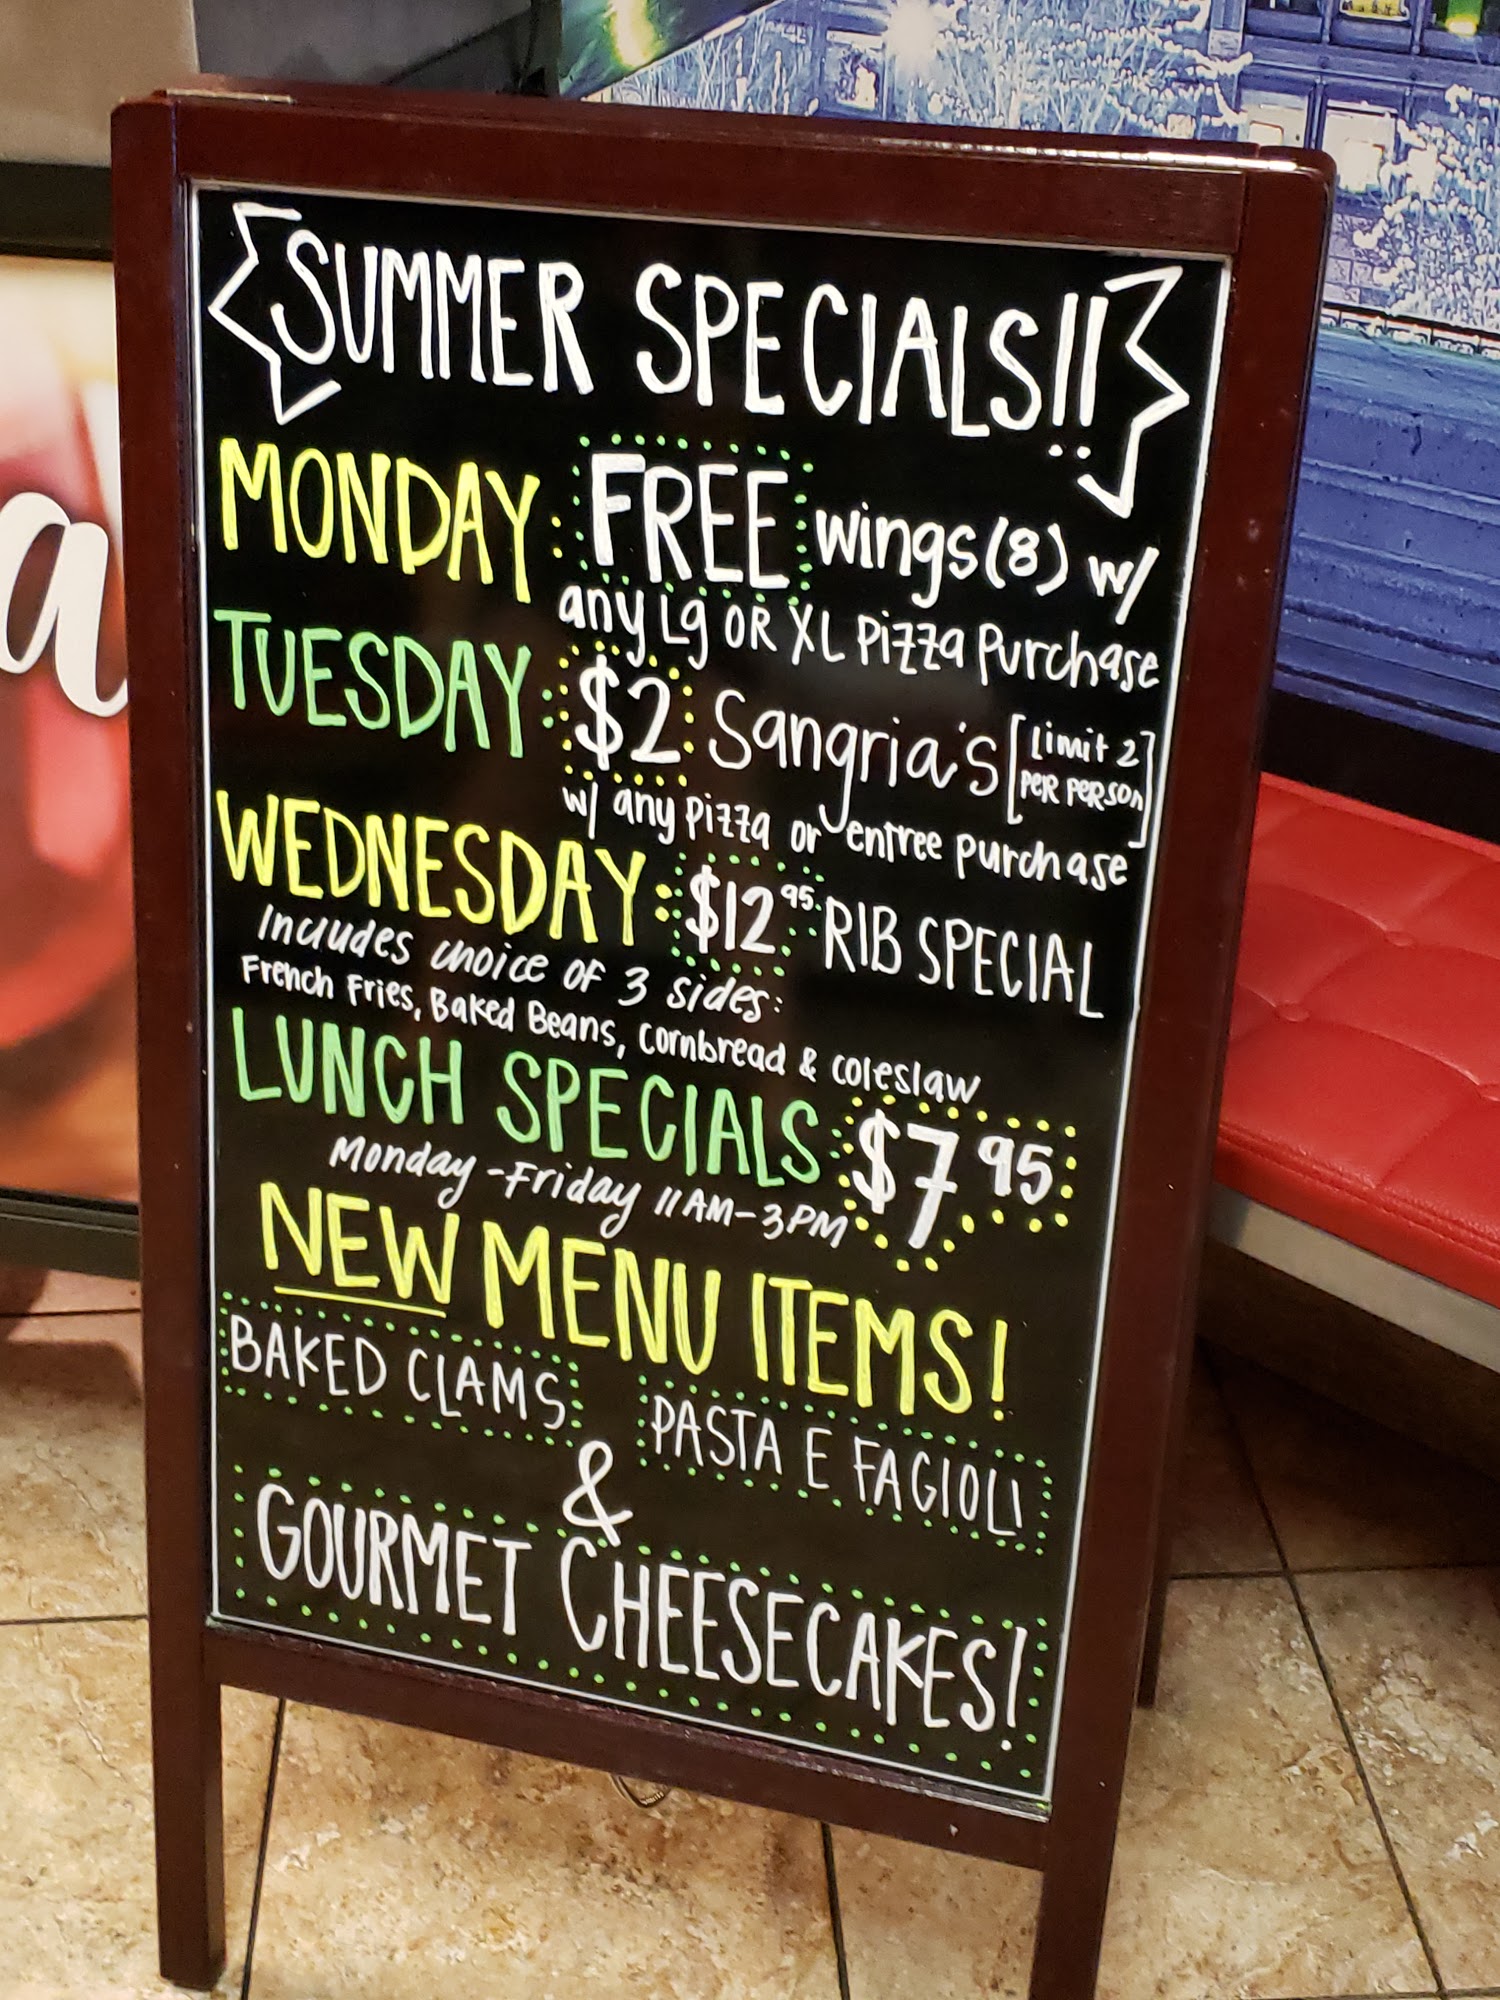 SUMMER SPECIALS!!
MONDAY: FREE wings (8) w/
any Lg OR XL Pizza Purchase
TUESDAY: $2 Sangria's [Limit 2
PER PERSON]
w/ any pizza or entree purchase
WEDNESDAY: $12.95 RIB SPECIAL
Includes choice of 3 sides:
French Fries, Baked Beans, Cornbread & coleslaw
LUNCH SPECIALS: $7 95
Monday - Friday 11AM - 3PM
NEW MENU ITEMS!
BAKED CLAMS
PASTA E FAGIOLI
&
GOURMET CHEESECAKES!
a